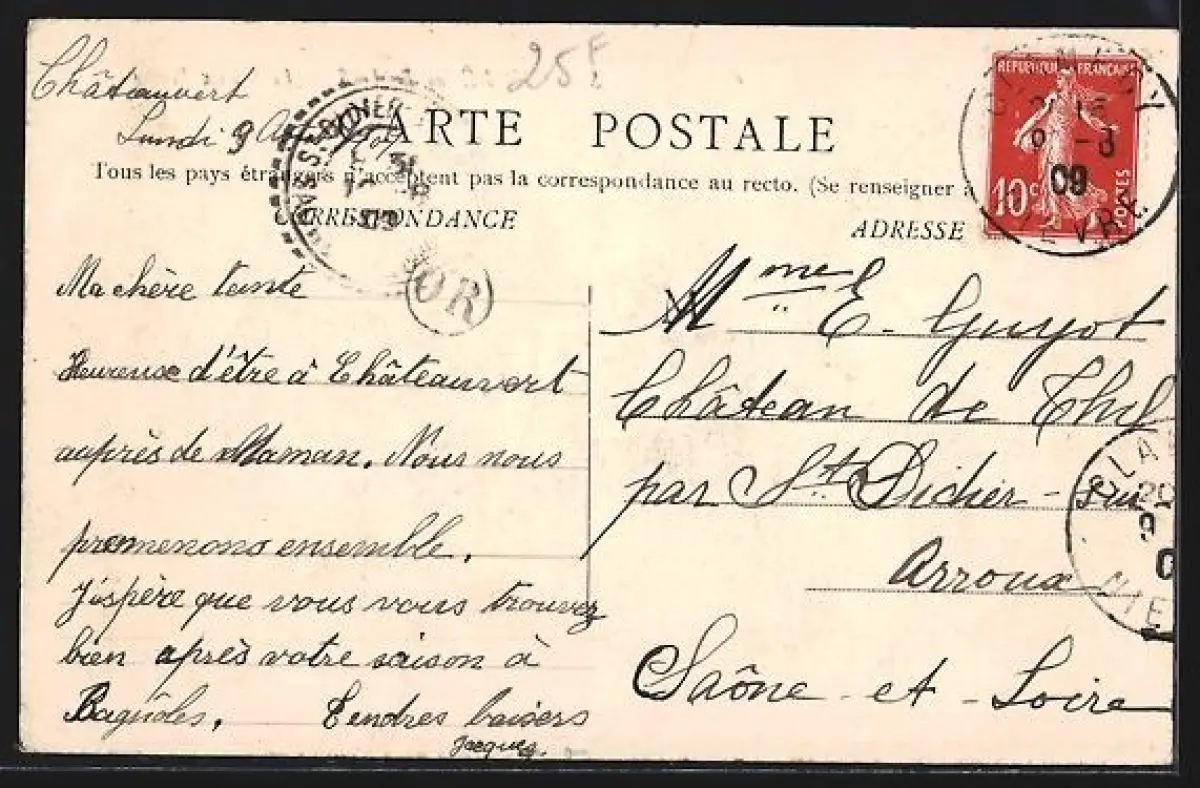 25F
Châteauvert
Lundi 9
CARTE POSTALE
Tous les pays étrangers n'acceptent pas la correspondance au recto. (Se renseigner à
CORRESPONDANCE
ADRESSE
REPUBLIQUE FRANÇAISE
10c POSTES
09
OR
Ma chère tante
Heureuse d'être à Châteauvert
auprès de Maman. Nous nous
promenons ensemble.
J'espère que vous vous trouvez
bien après votre saison à
Bagnoles. Tendres baisers
Jacques.
Mme E. Guyot
Château de
par St Didier - sur
Arroux
Saône - et - Loire